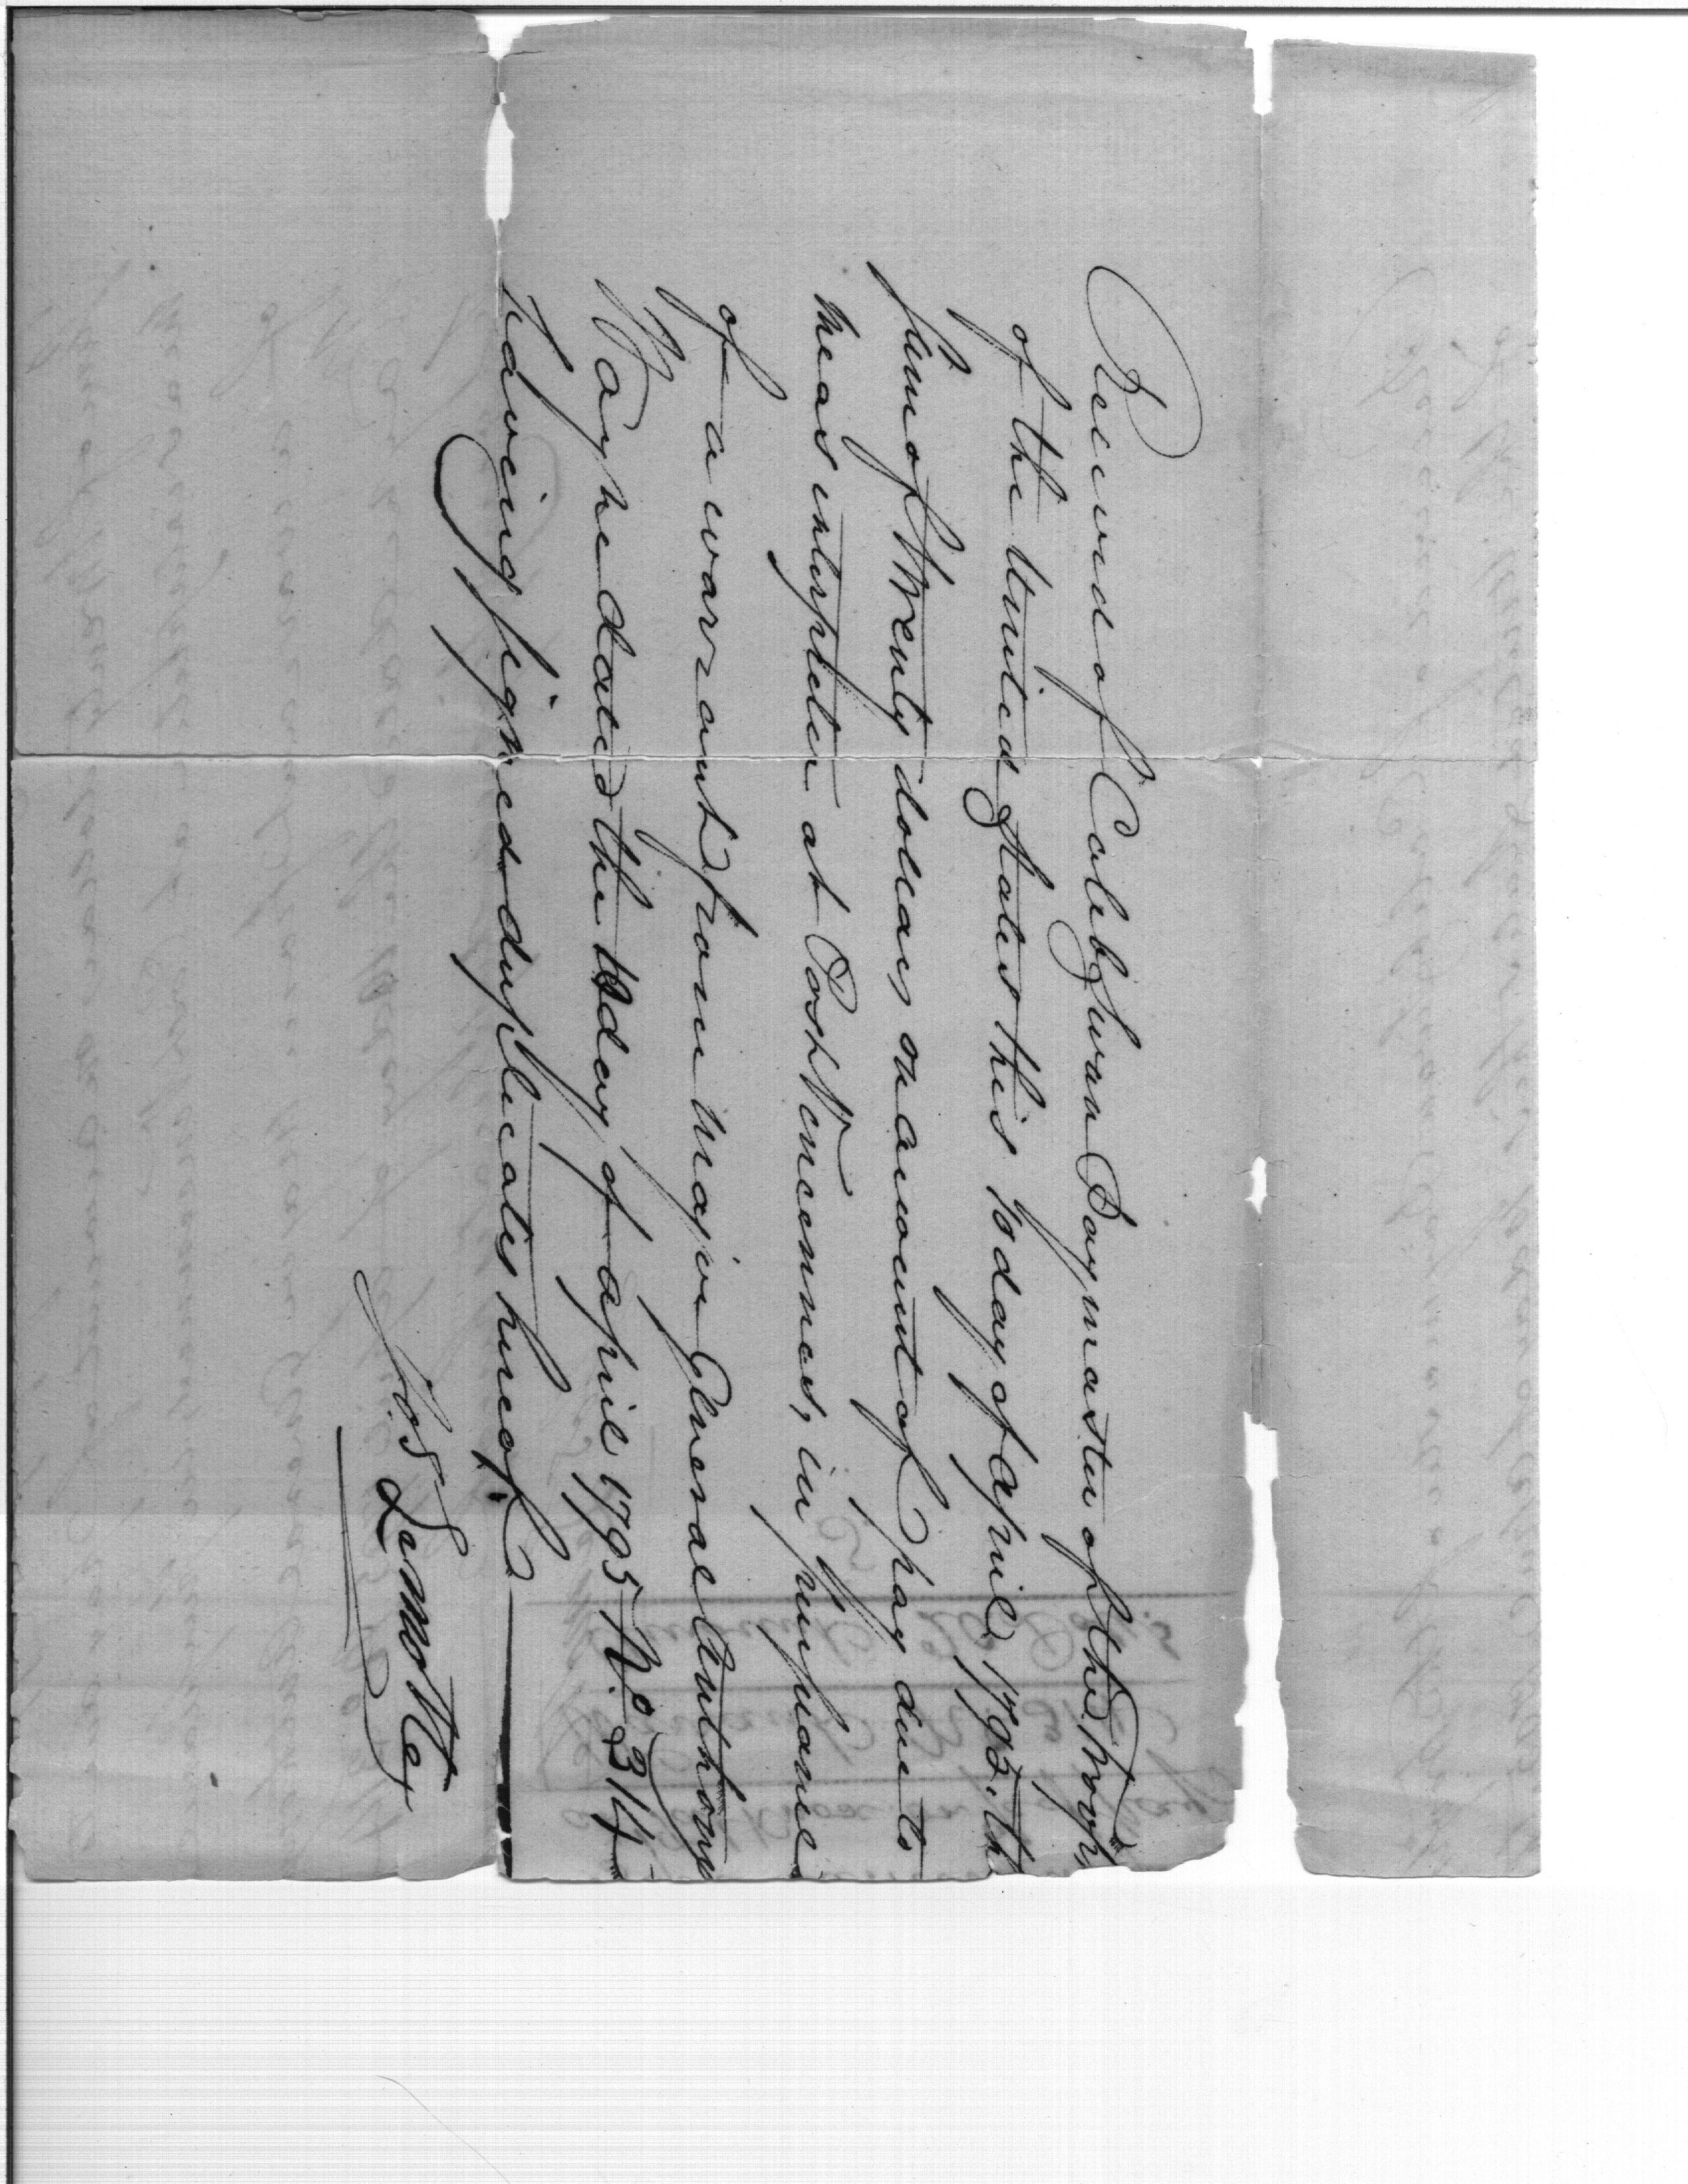 Received of Caleb Swan Paymaster of the troops
of the United States this 10 day of april 1795. the
sum of twenty dollars on account of pay due to
me as interpreter at Post Vincennes, in pursuance
of a warrant from Major General Anthony
Wayne dated the 10 day of april 1795 No 314
having signed duplicates hereof.
Jos LamoTTe